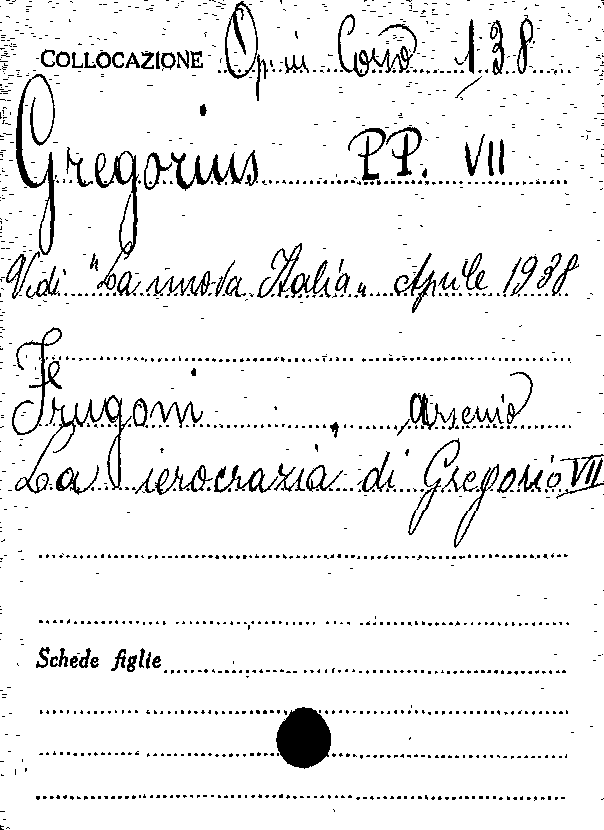 COLLOCAZIONE Op. in Corso 138
Gregorius PP. VII
Vedi "La nuova Italia" Aprile 1938
Frugoni, Arsenio
La ierocrazia di Gregorio VII
Schede figlie